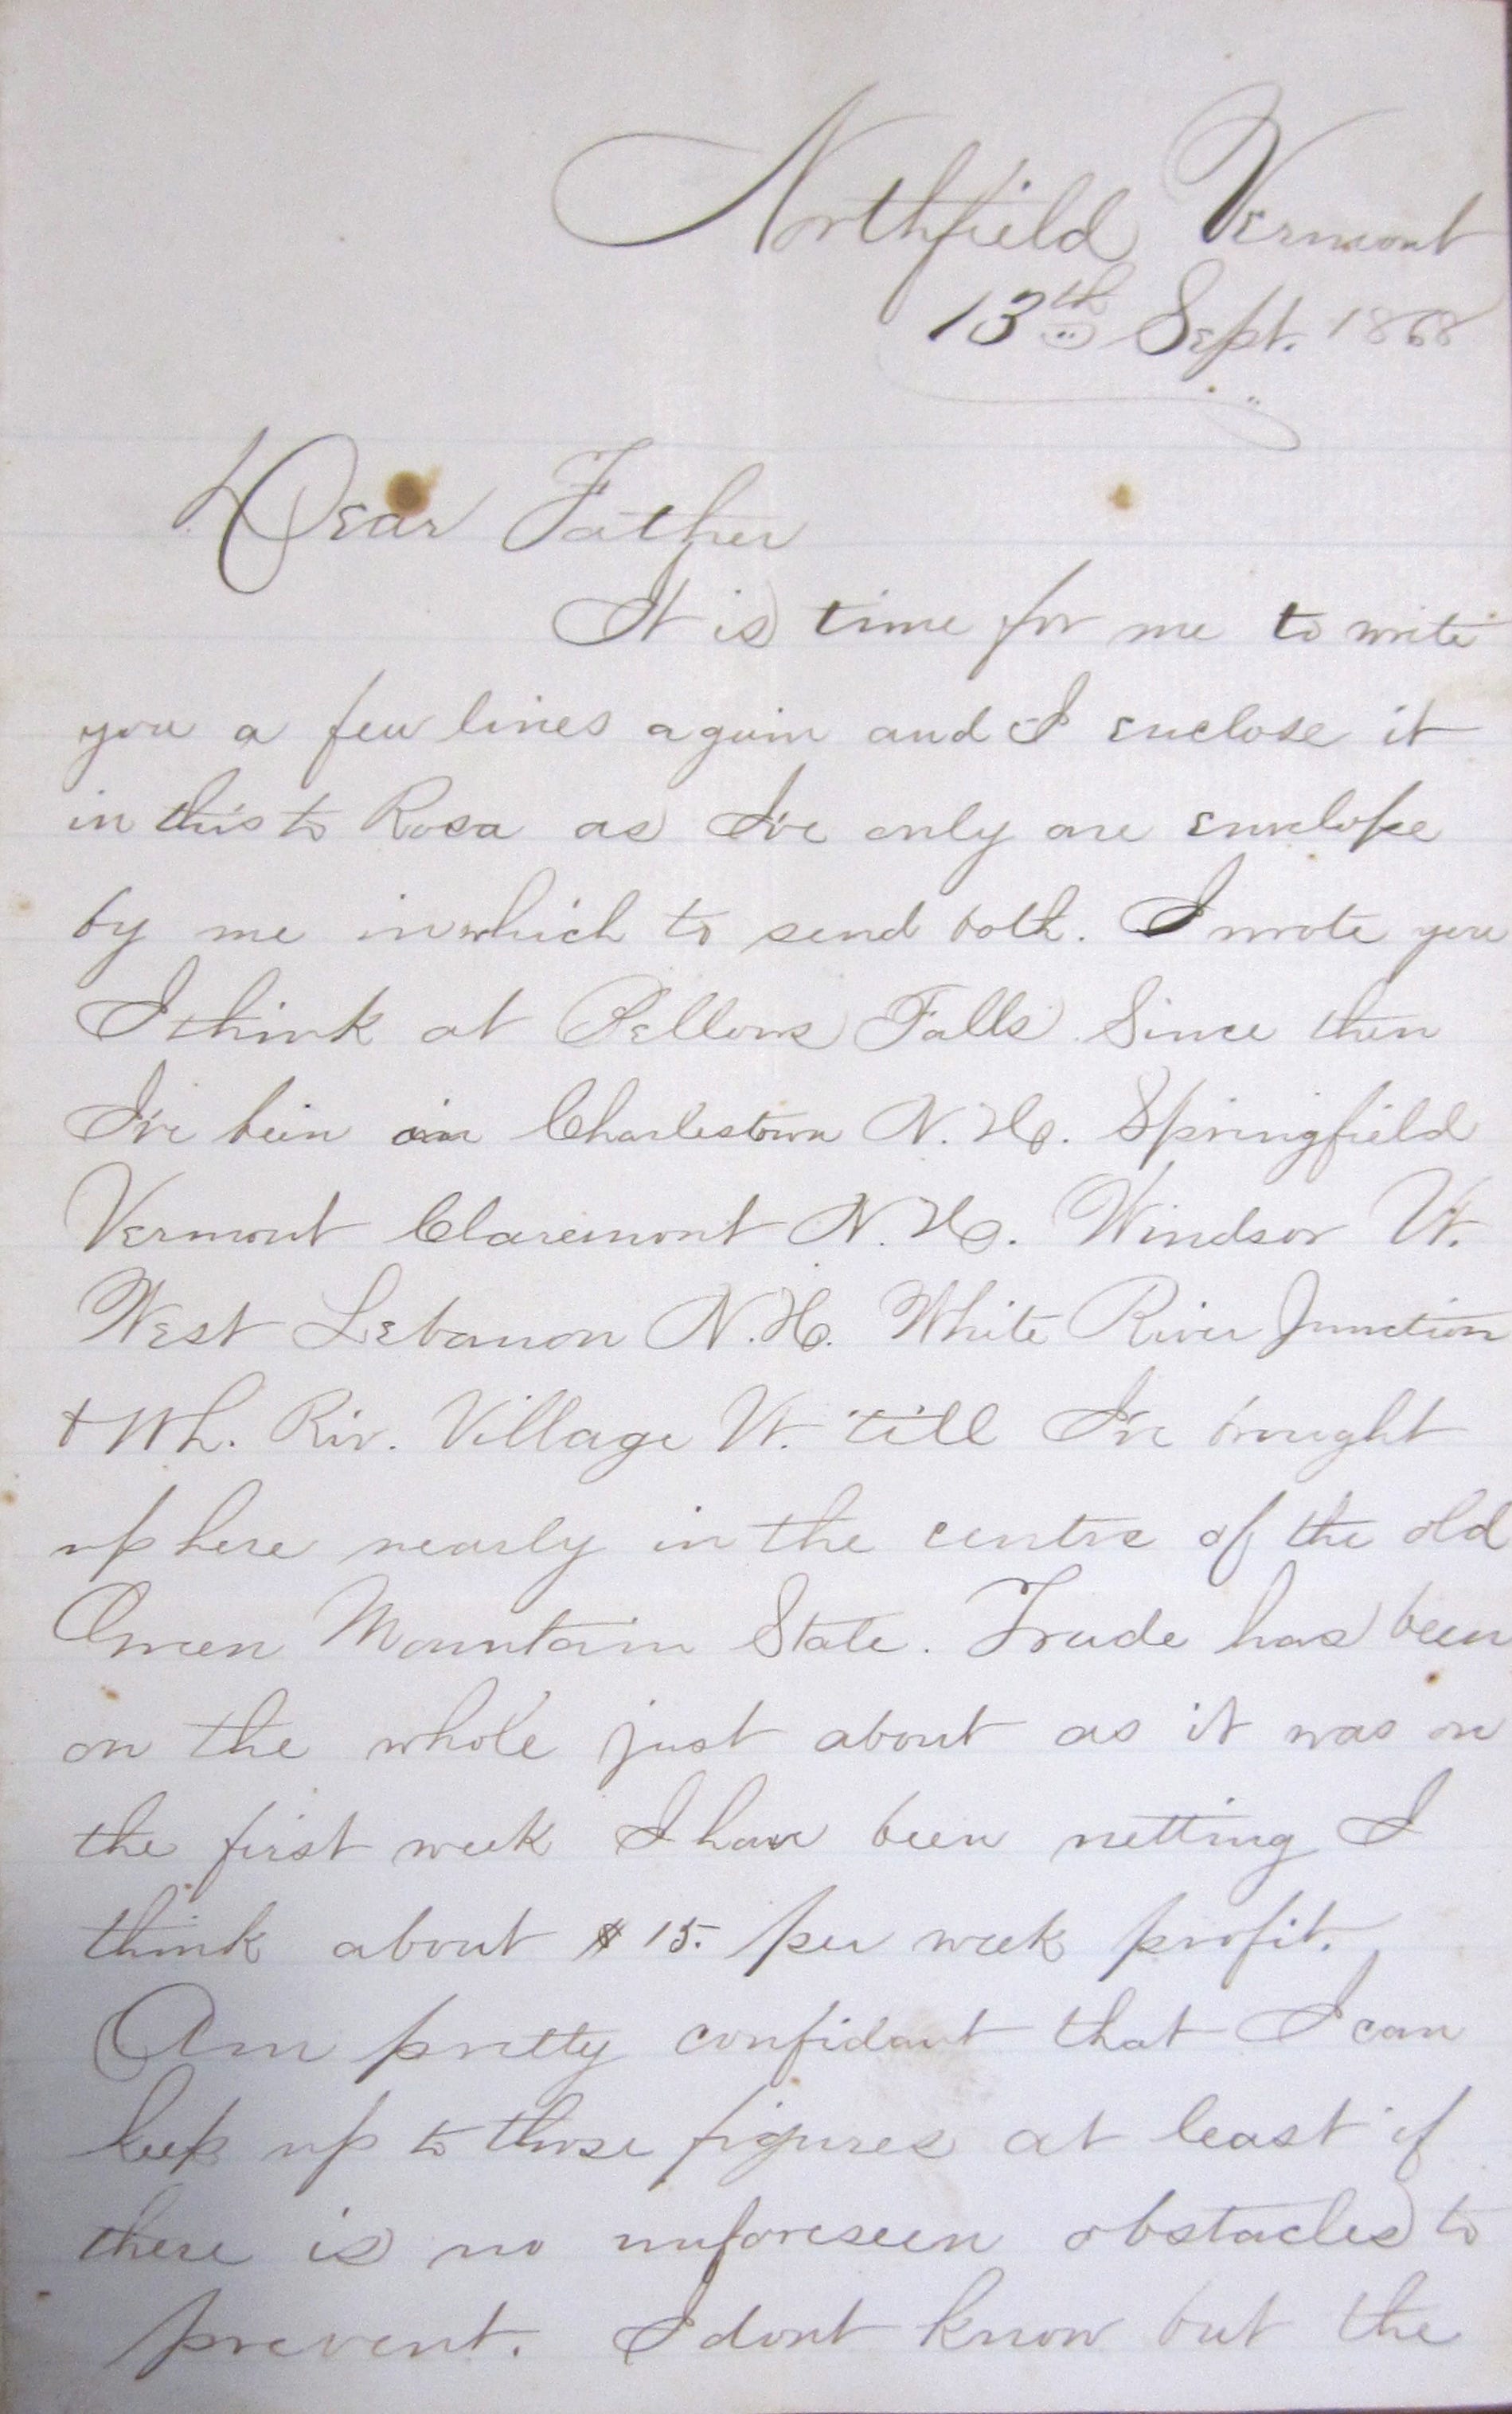 Northfield Vermont
13th Sept. 1868
Dear Father
It is time for me to write
you a few lines again and I enclose it
in this to Rosa as I've only one envelope
by me in which to send both. I wrote you
I think at Bellows Falls. Since then
I've been in Charlestown N.H. Springfield
Vermont Claremont N.H. Windsor Vt.
West Lebanon N.H. White River Junction
& Wh. Riv. Village Vt. till I've brought
up here nearly in the centre of the old
Green Mountain State. Trade has been
on the whole just about as it was on
the first week I have been netting I
think about $15. per week profit.
Am pretty confidant that I can
keep up to those figures at least if
there is no unforeseen obstacles to
prevent. I dont know but the